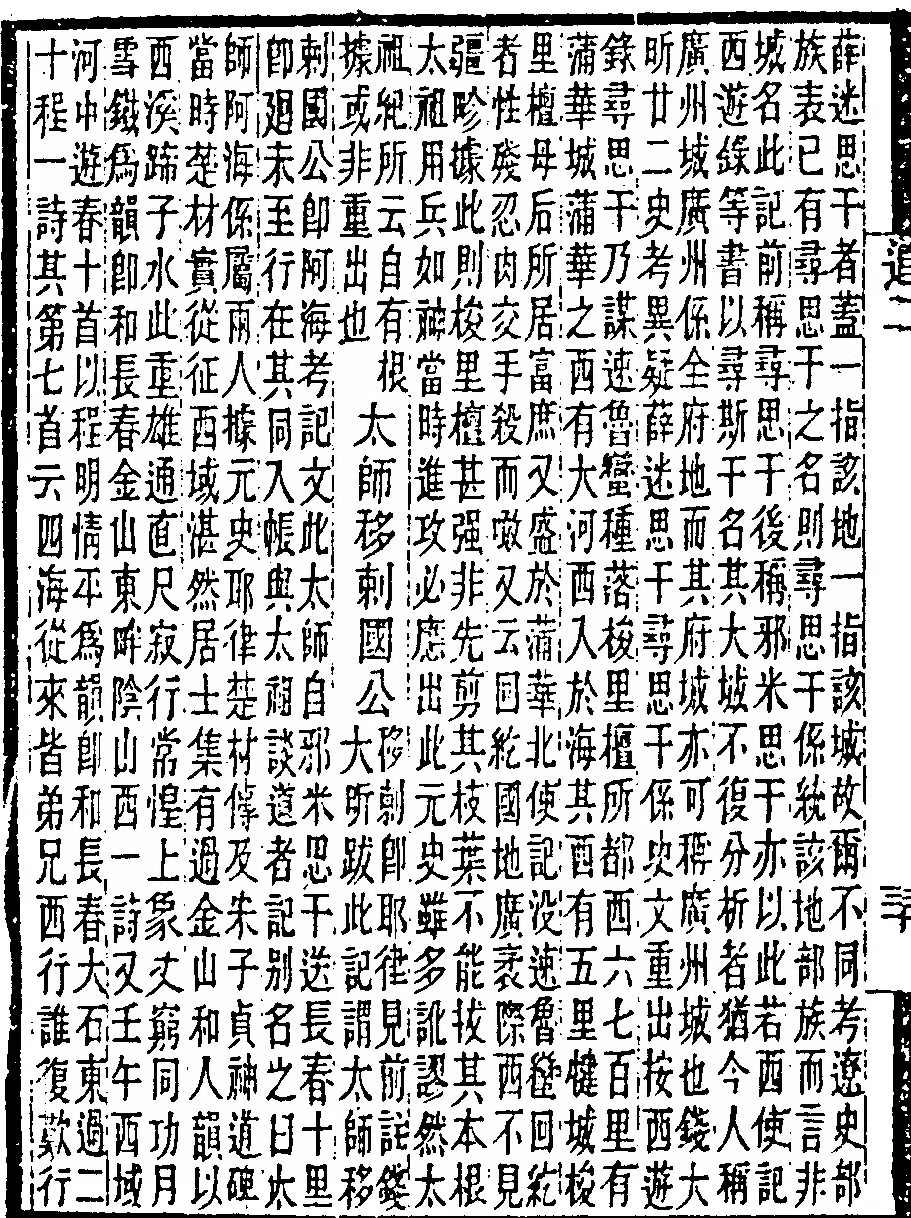 薛迷思干者蓋一指該地一指該城故爾不同考遼史部
族表已有尋思干之名則尋思干係統該地部族而言非
城名此記前稱尋思干後稱邪米思干亦以此若西使記
西遊錄等書以尋斯干名其大城不復分析者猶今人稱
廣州城廣州係全府地而其府城亦可稱廣州城也錢大
昕廿二史考異疑薛迷思干尋思干係史文重出按西遊
錄尋思干乃謀速魯蠻種落梭里檀所都西六七百里有
蒲華城蒲華之西有大河西入於海其西有五里犍城梭
里檀母后所居富庶又盛於蒲華北使記没速魯蠻回紇
者性殘忍肉交手殺而噉又云回紇國地廣袤際西不見
疆畛據此則梭里檀甚强非先剪其枝葉不能拔其本根
太祖用兵如神當時進攻必應出此元史雖多訛謬然太
祖紀所云自有根
據或非重出也
太師移剌國公
移剌卽耶律見前註錢
大昕跋此記謂太師移
剌國公卽阿海考記文此太師自邪米思干送長春十里
卽廻未至行在其同入帳與太祖談道者記别名之曰太
師阿海係屬兩人據元史耶律楚材傳及朱子貞神道碑
當時楚材實從征西域湛然居士集有過金山和人韻以
西溪蹄子水此重雄通直尺寂行常惶上象丈窮同功月
雪鐵爲韻卽和長春金山東畔陰山西一詩又壬午西域
河中遊春十首以程明情平爲韻卽和長春大石東過二
十程一詩其第七首云四海從來皆弟兄西行誰復歎行
道二
三十